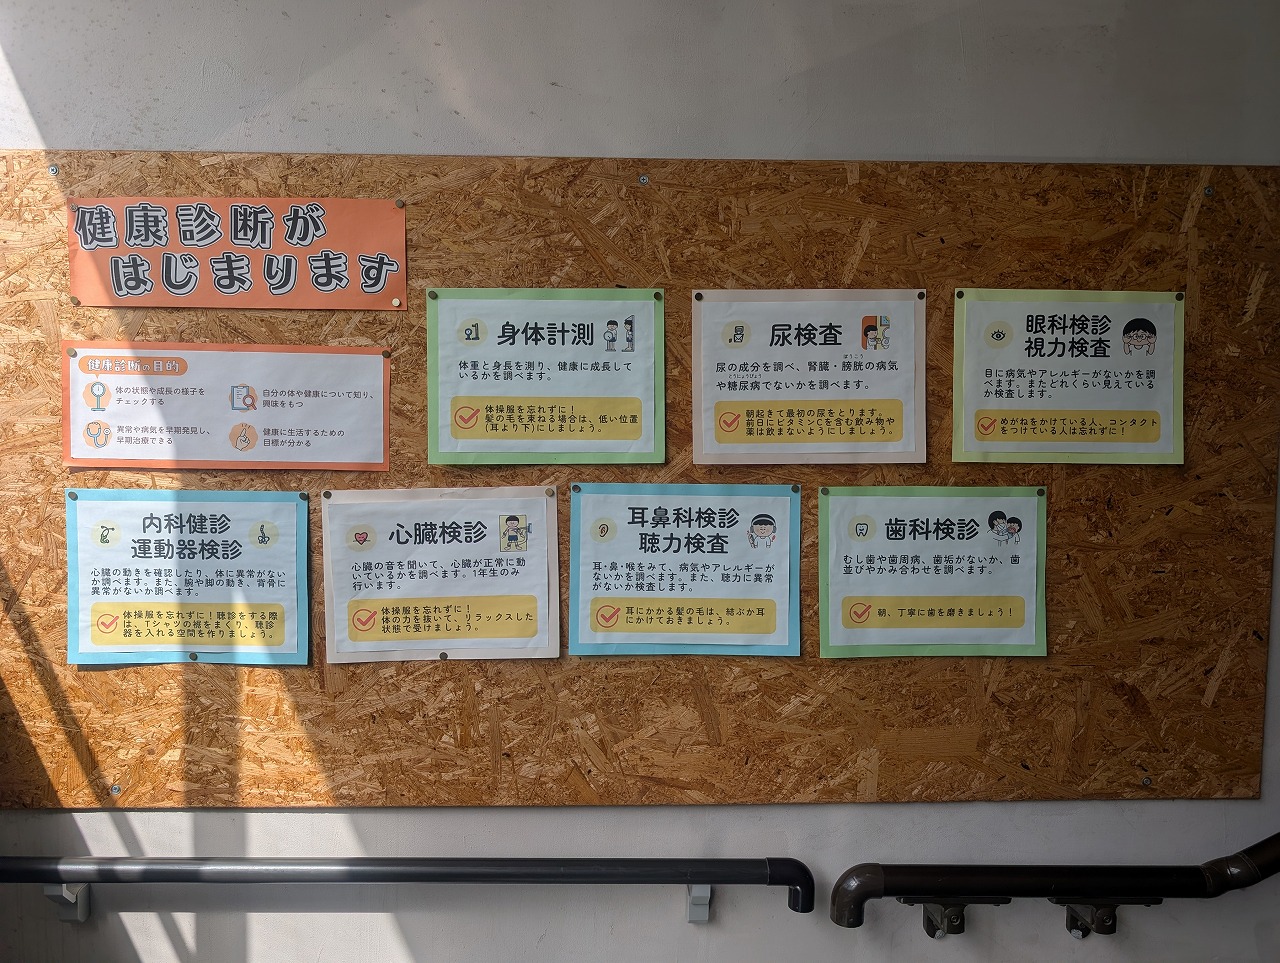 健康診断が
はじまります
健康診断の目的
体の状態や成長の様子を
チェックする
自分の体や健康について知り、
興味をもつ
異常や病気を早期発見し、
早期治療できる
健康に生活するための
目標が分かる
身体計測
体重と身長を測り、健康に成長して
いるかを調べます。
体操服を忘れずに！
髪の毛を束ねる場合は、低い位置
(耳より下)にしましょう。
尿検査
ぼうこう
尿の成分を調べ、腎臓・膀胱の病気
とうにょうびょう
や糖尿病でないかを調べます。
朝起きて最初の尿をとります。
前日にビタミンCを含む飲み物や
薬は飲まないようにしましょう。
眼科検診
視力検査
目に病気やアレルギーがないかを調
べます。またどれくらい見えている
か検査します。
めがねをかけている人、コンタクト
をつけている人は忘れずに！
内科健診
運動器検診
心臓の動きを確認したり、体に異常がない
か調べます。また、腕や脚の動き、背骨に
異常がないか調べます。
体操服を忘れずに！聴診をする際
は、Tシャツの裾をまくり、聴診
器を入れる空間を作りましょう。
心臓検診
心臓の音を聞いて、心臓が正常に動
いているかを調べます。1年生のみ
行います。
体操服を忘れずに！
体の力を抜いて、リラックスした
状態で受けましょう。
耳鼻科検診
聴力検査
耳・鼻・喉をみて、病気やアレルギーが
ないかを調べます。また、聴力に異常
がないか検査します。
耳にかかる髪の毛は、結ぶか耳
にかけておきましょう。
歯科検診
むし歯や歯周病、歯垢がないか、歯
並びやかみ合わせを調べます。
朝、丁寧に歯を磨きましょう！